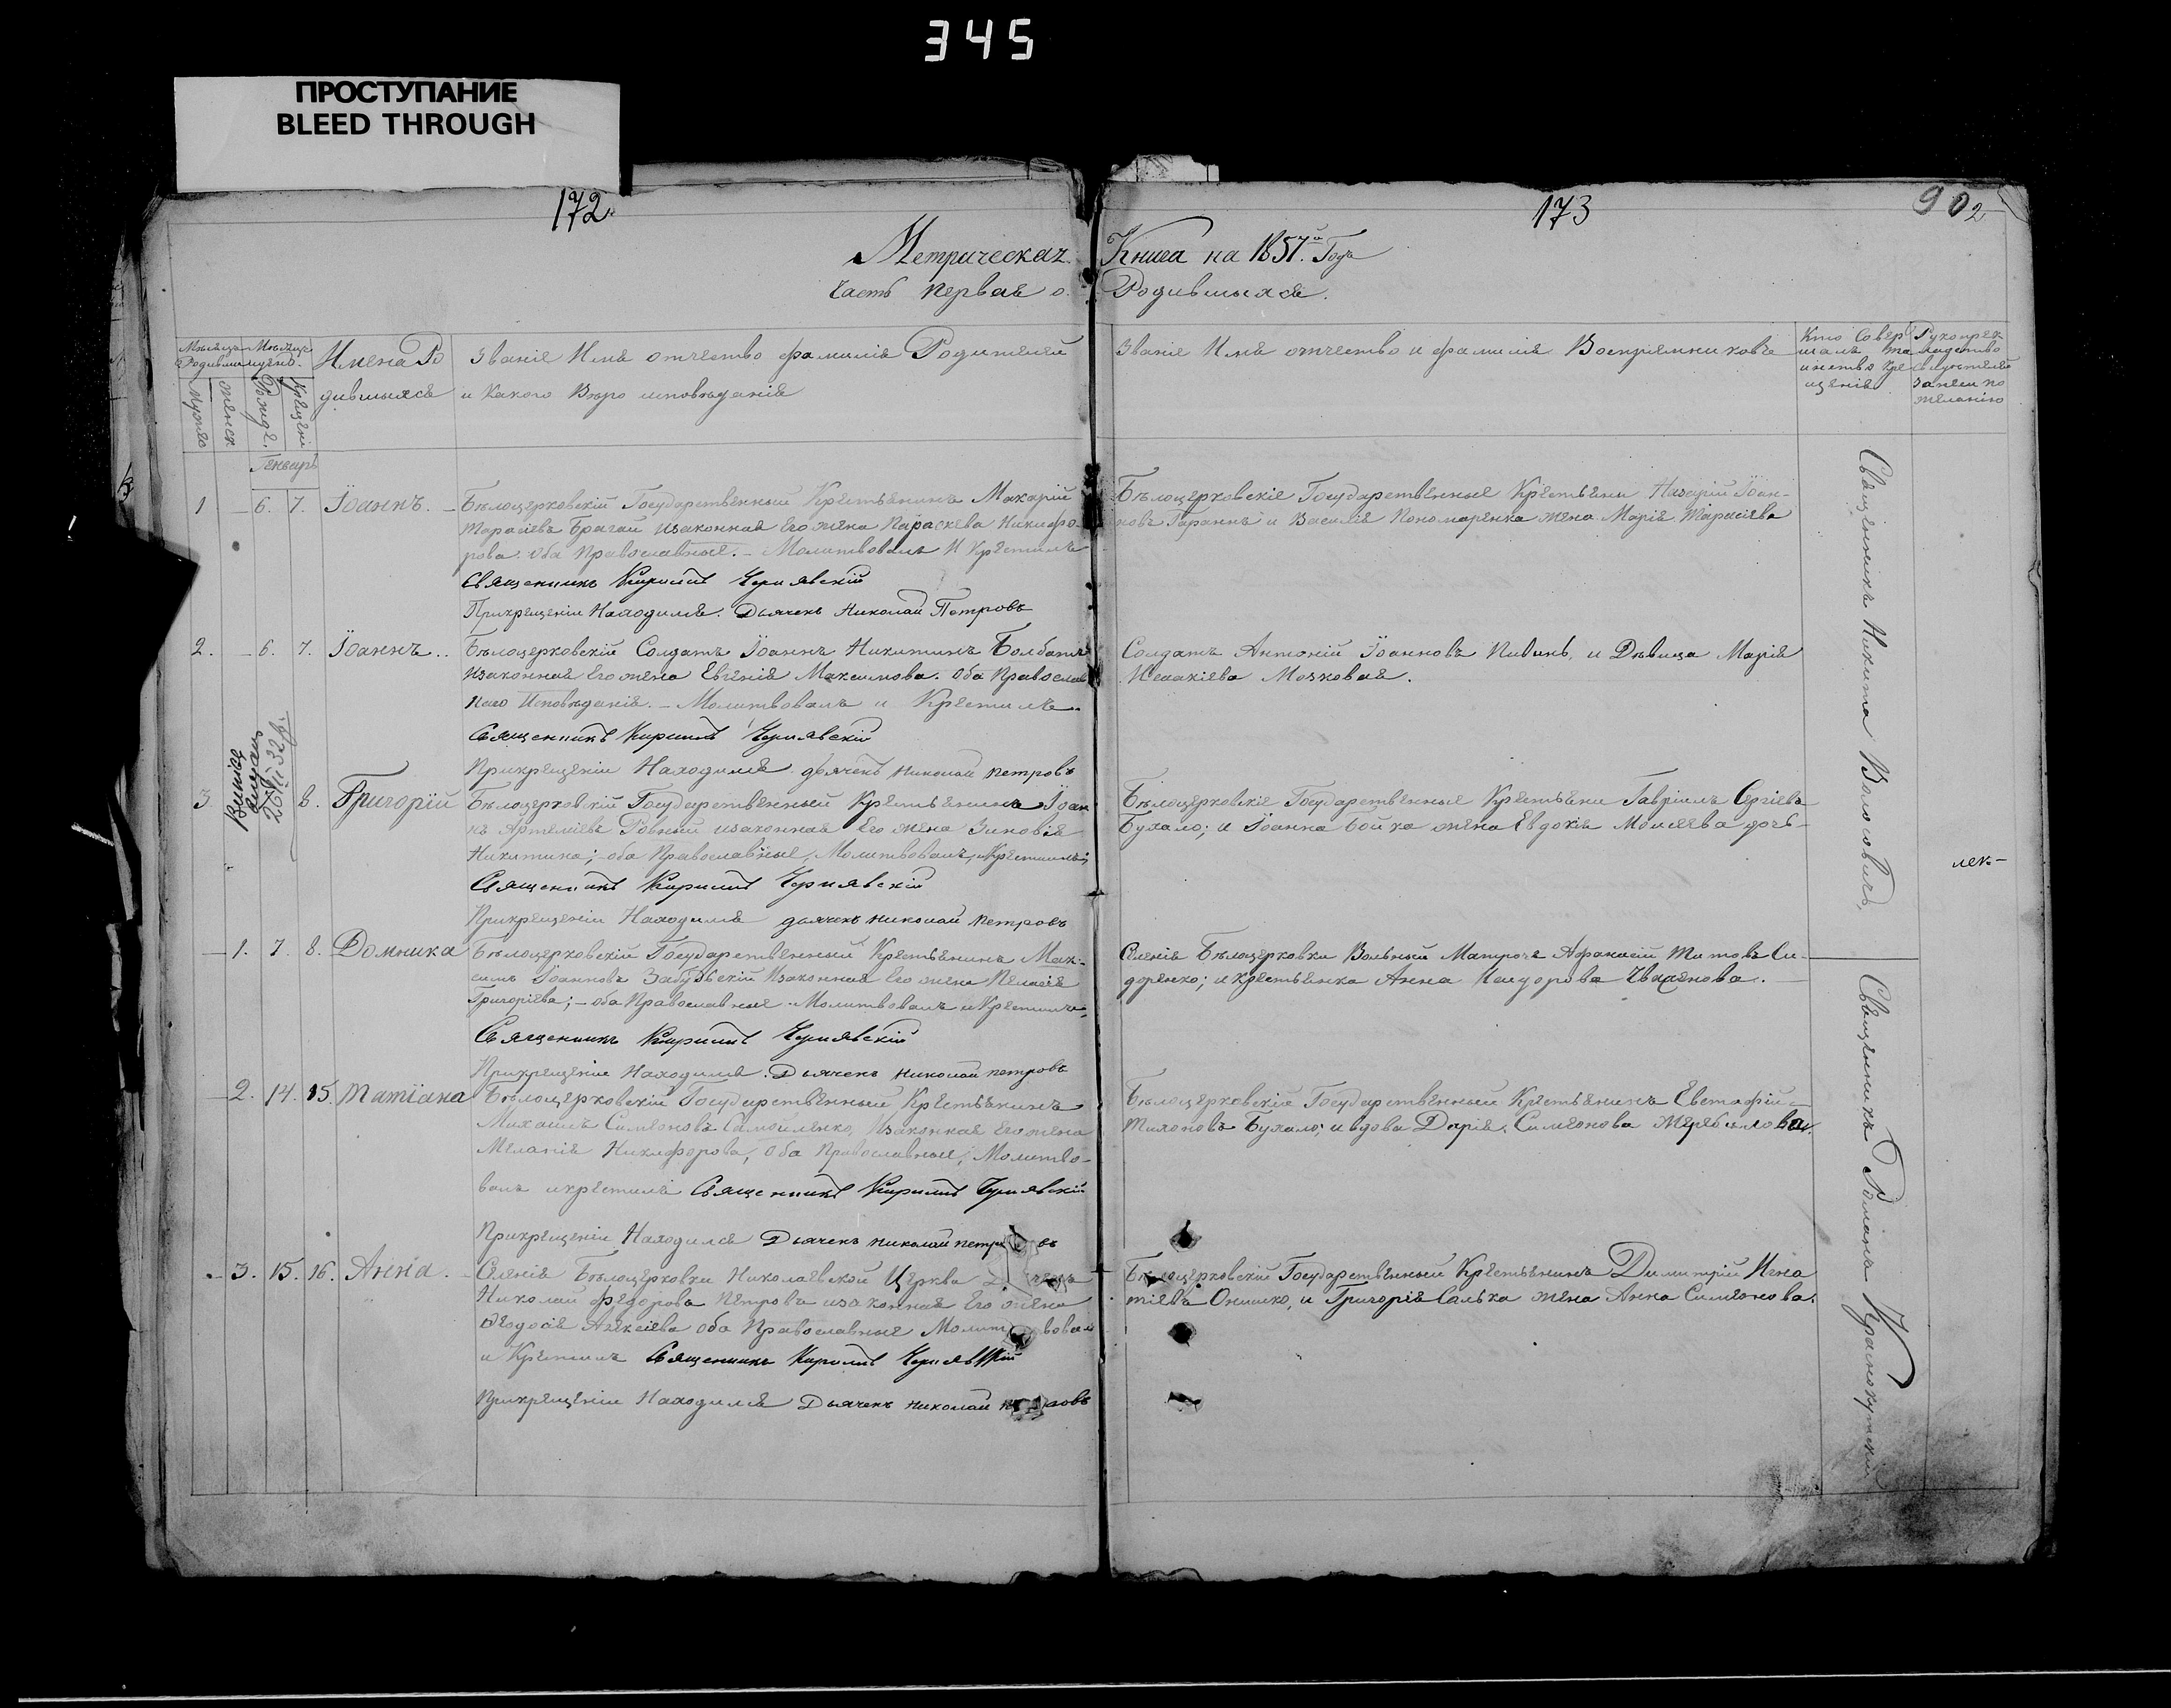 345
ПРОСТУПАНИЕ
BLEED THROUGH
172
173
90 2
Метрическая Книга на 1857й Годъ
Часть первая о Родившыхся.
Имена Ро
дившыхся
Званіе Имя отчество фамилія Родителей
и какого Вѣро исповѣданія
Званіе Имя отчество и фамилія Воспріемниковъ
Кто Совер
шалъ та
инство Кре
щенія
Рукопрек
ладство
свидѣтелей
записи по
желанію
Мужес
женск
Рожде.
Крещені
Генварь
1 6. 7. Іоаннъ.
Бѣлоцерковскій Государственный Крестьянинъ Макарій
Тарасіевъ Брагай изаконная Его жена Параскева Никифо-
рова. оба Православные. Молитвовалъ И Крестилъ
Священникъ Кирилъ Чернявскій
Прикрещеніи Находился. Дьячекъ Николай Петровъ
Бѣлоцерковскіе Государственные Крестьяни Назарій Іоан-
новъ Гараннъ и Василія Пономаренка жена Марія Тарасіева
2. 6. 7. Іоаннъ..
Бѣлоцерковскій Солдатъ Іоаннъ Никитинъ Болбатъ
изаконная Его жена Евгенія Максимова. Оба Православ
наго Исповѣданія. Молитвовалъ и Крестилъ
Священникъ Кирилъ Чернявскій
Прикрещеніи Находился дьячекъ Николай Петровъ
Солдатъ Антоній Іоанновъ Пивинь, и Дѣвица Марія
Исаакіева Мозковая.
3 8. Григорій
Бѣлоцерковскій Государственный Крестьянинъ Іоан
нъ Артеміевъ Ровный изаконная Его жена Зиновія
Никитина; оба Православные, Молитвовалъ, и Крестилъ;
Священникъ Кирилъ Чернявскій
Прикрещеніи Находился дьячекъ Николай Петровъ
Бѣлоцерковскіе Государственные Крестьяни Гавріилъ Сергіевъ
Бухало; и Іоанна Бойка жена Евдокія Моисеева дочь
1. 7. 8. Домника
Бѣлоцерковскій Государственный Крестьянинъ Мак-
симъ Іоанновъ Изаконная Его жена Пелагія
Григоріева; оба Православные Молитвовалъ и Крестилъ,
Священникъ Кирилъ Чернявскій
Прикрещеніи Находился. Дьячекъ Николай Петровъ
Селенія Бѣлоцерковки Вольный Матрозъ Афанасій Титовъ Си-
доренко; и крестьянка Анна
2. 14. 15. Татіана
Бѣлоцерковскій Государственный Крестьянинъ
Михаилъ Симеоновъ Самойленко, Изаконная Его жена
Меланія Никифорова, Оба Православные, Молитво-
валъ икрестилъ Священникъ Кирилъ Чернявскій
Прикрещеніи Находился Дьячекъ Николай Петровъ
Бѣлоцерковскій Государственный Крестьянинъ Евстафій
Тихоновъ Бухало; и вдова Дарія, Симеонова
3. 15. 16. Анна.
Селенія Бѣлоцерковки Николаевской Церкви
Николай Федоровъ Петровъ изаконная Его жена
Феодосія Алексіева Оба Православные
и Крестилъ Священникъ Кирилъ Чернявскій
Прикрещеніи Находился Дьячекъ Николай
Бѣлоцерковскій Государственный Крестьянинъ Димитрій Игна
тіевъ Онишко, и Григорія Салька жена Анна Симеонова.
Священникъ Никита Волосовичъ,
Священникъ Романъ Краснокутскій